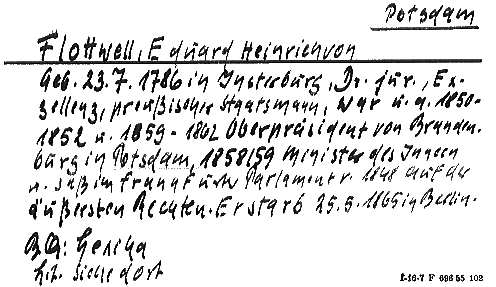 Potsdam
Flottwell, Eduard Heinrich von
Geb. 23.7.1786 in Insterburg, Dr. jur., Ex-
zellenz, preußischer Staatsmann, war u.a. 1850-
1852 u. 1859-1862 Oberpräsident von Branden-
burg in Potsdam, 1858/59 Minister des Innern
u. saß im Frankfurter Parlament v. 1848 auf der
äußersten Rechten. Er starb 25.5.1865 in Berlin.
BQ:
Lit. siehe dort
I-16-7 F 696 55 102